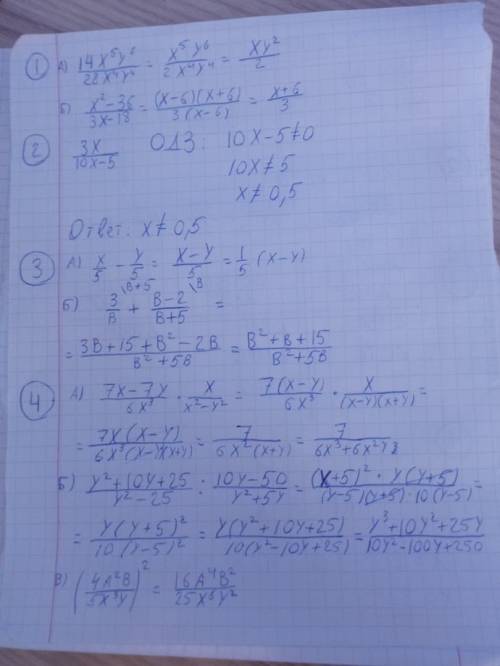 ① А) 14x⁵y⁶/22x⁴y⁴ = x⁵y⁶/2x⁴y⁴ = xy²/2
Б) x²-36/3x-18 = (x-6)(x+6)/3(x-6) = x+6/3
② 3x/10x-5 ОДЗ: 10x-5≠0
10x≠5
x≠0,5
Ответ: x≠0,5
③ А) x/5 - y/5 = x-y/5 = 1/5 (x-y)
Б) 3/B \B+5 + B-2/B+5 \B =
= 3B+15+B²-2B/B²+5B = B²+B+15/B²+5B
④ А) 7x-7y/6x³ · x/x²-y² = 7(x-y)/6x³ · x/(x-y)(x+y) =
= 7x(x-y)/6x³(x-y)(x+y) = 7/6x²(x+y) = 7/6x³+6x²y
Б) y²+10y+25/y²-25 : 10y-50/y²+5y = (y+5)²·y(y+5)/(y-5)(y+5)·10(y-5) =
= y(y+5)²/10(y-5)² = y(y²+10y+25)/10(y²-10y+25) = y³+10y²+25y/10y²-100y+250
В) (4A²B/5x³y)² = 16A⁴B²/25x⁶y²